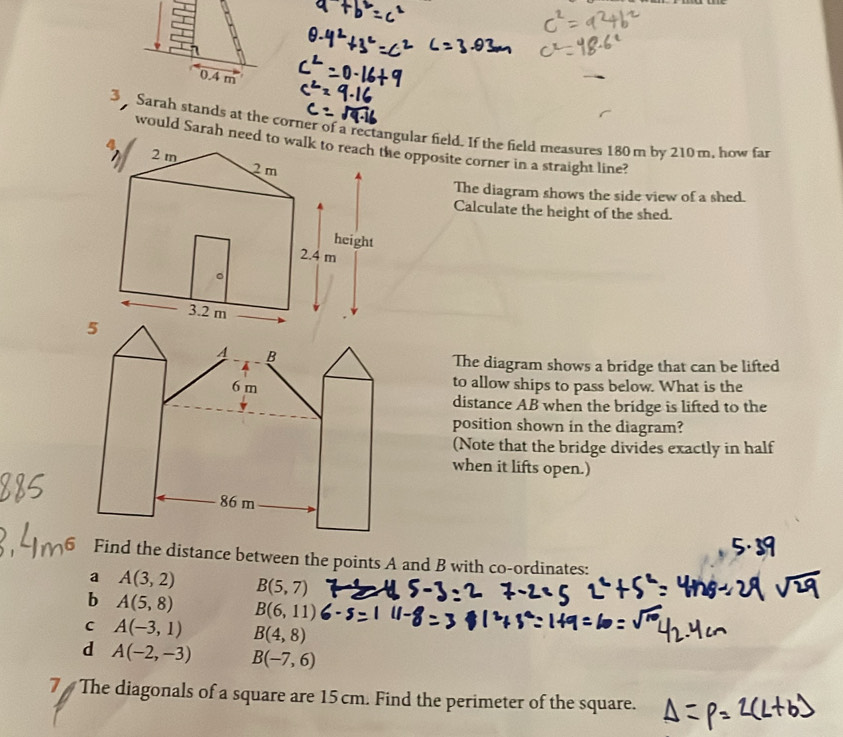 a² + b² = c²
0.4² + 3² = c² c = 3.03m
c² = 0.16 + 9
c² = 9.16
c = √9.16
c² = a² + b²
c² = 48.6²
0.4 m
3 Sarah stands at the corner of a rectangular field. If the field measures 180 m by 210 m, how far
would Sarah need to walk to reach the opposite corner in a straight line?
4
2 m
2 m
height
2.4 m
3.2 m
The diagram shows the side view of a shed.
Calculate the height of the shed.
5
A B
6 m
86 m
The diagram shows a bridge that can be lifted
to allow ships to pass below. What is the
distance AB when the bridge is lifted to the
position shown in the diagram?
(Note that the bridge divides exactly in half
when it lifts open.)
885
3.4m
5.39
6 Find the distance between the points A and B with co-ordinates:
a A(3, 2) B(5, 7) 5-3=2 7-2=5 2² + 5² = 29 √29
b A(5, 8) B(6, 11) 6-5=1 11-8=3 1² + 3² = 1+9 = 10 = √10
c A(−3, 1) B(4, 8)
42.4cm
d A(−2, −3) B(−7, 6)
7 The diagonals of a square are 15 cm. Find the perimeter of the square.
Δ = P = 2(L+b)